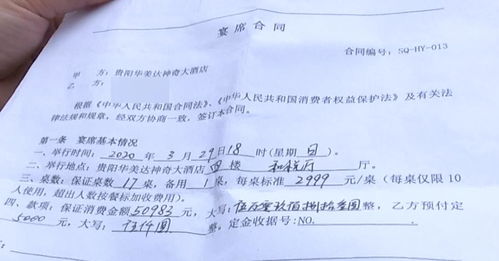 宴席合同
合同编号：SQ-HY-013
甲 方：贵阳华美达神奇大酒店
乙 方：
根据《中华人民共和国合同法》、《中华人民共和国消费者权益保护法》及有关法
律法规和规章，经双方协商一致，签订本合同。
第一条 宴席基本情况
一、举行时间：2020 年 3 月 29 日 18 时（星期 日 ）
二、举行地点：贵阳华美达神奇大酒店 四 楼 和 府 厅。
三、桌数：保证桌数 17 桌，备用 1 桌，每桌标准 2999 元/桌（每桌仅限 10
人使用，超出人数按餐标加收费用）。
四、款项：保证消费金额 50983 元，大写：伍万零玖佰捌拾叁圆整，乙方预付定
5000 元，大写：伍仟圆 整，定金收据号：NO.